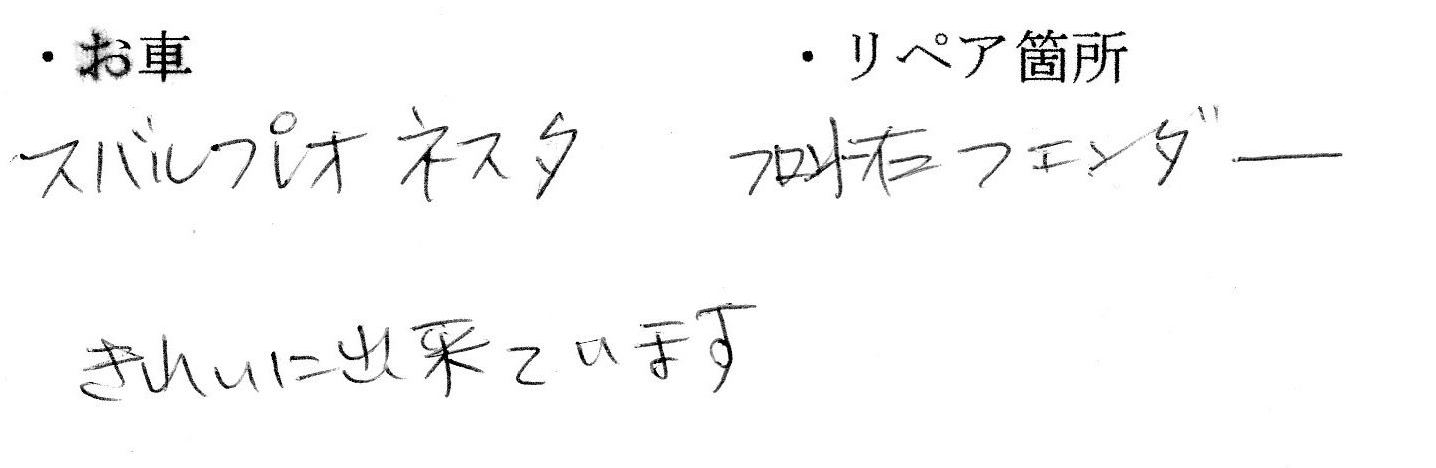 ・お車
・リペア箇所
スバルプレオ ネスタ
フロント右フェンダー
きれいに出来ています